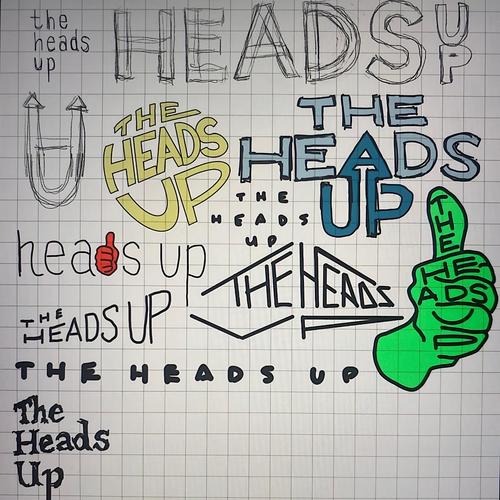 the
heads
up
HEADS
UP
U
THE
HEADS
UP
THE
HEADS
UP
THE
HEADS
UP
THE
HEADS
UP
heads up
THE HEADS
UP
THE
HEADS UP
THE HEADS UP
The
Heads
Up